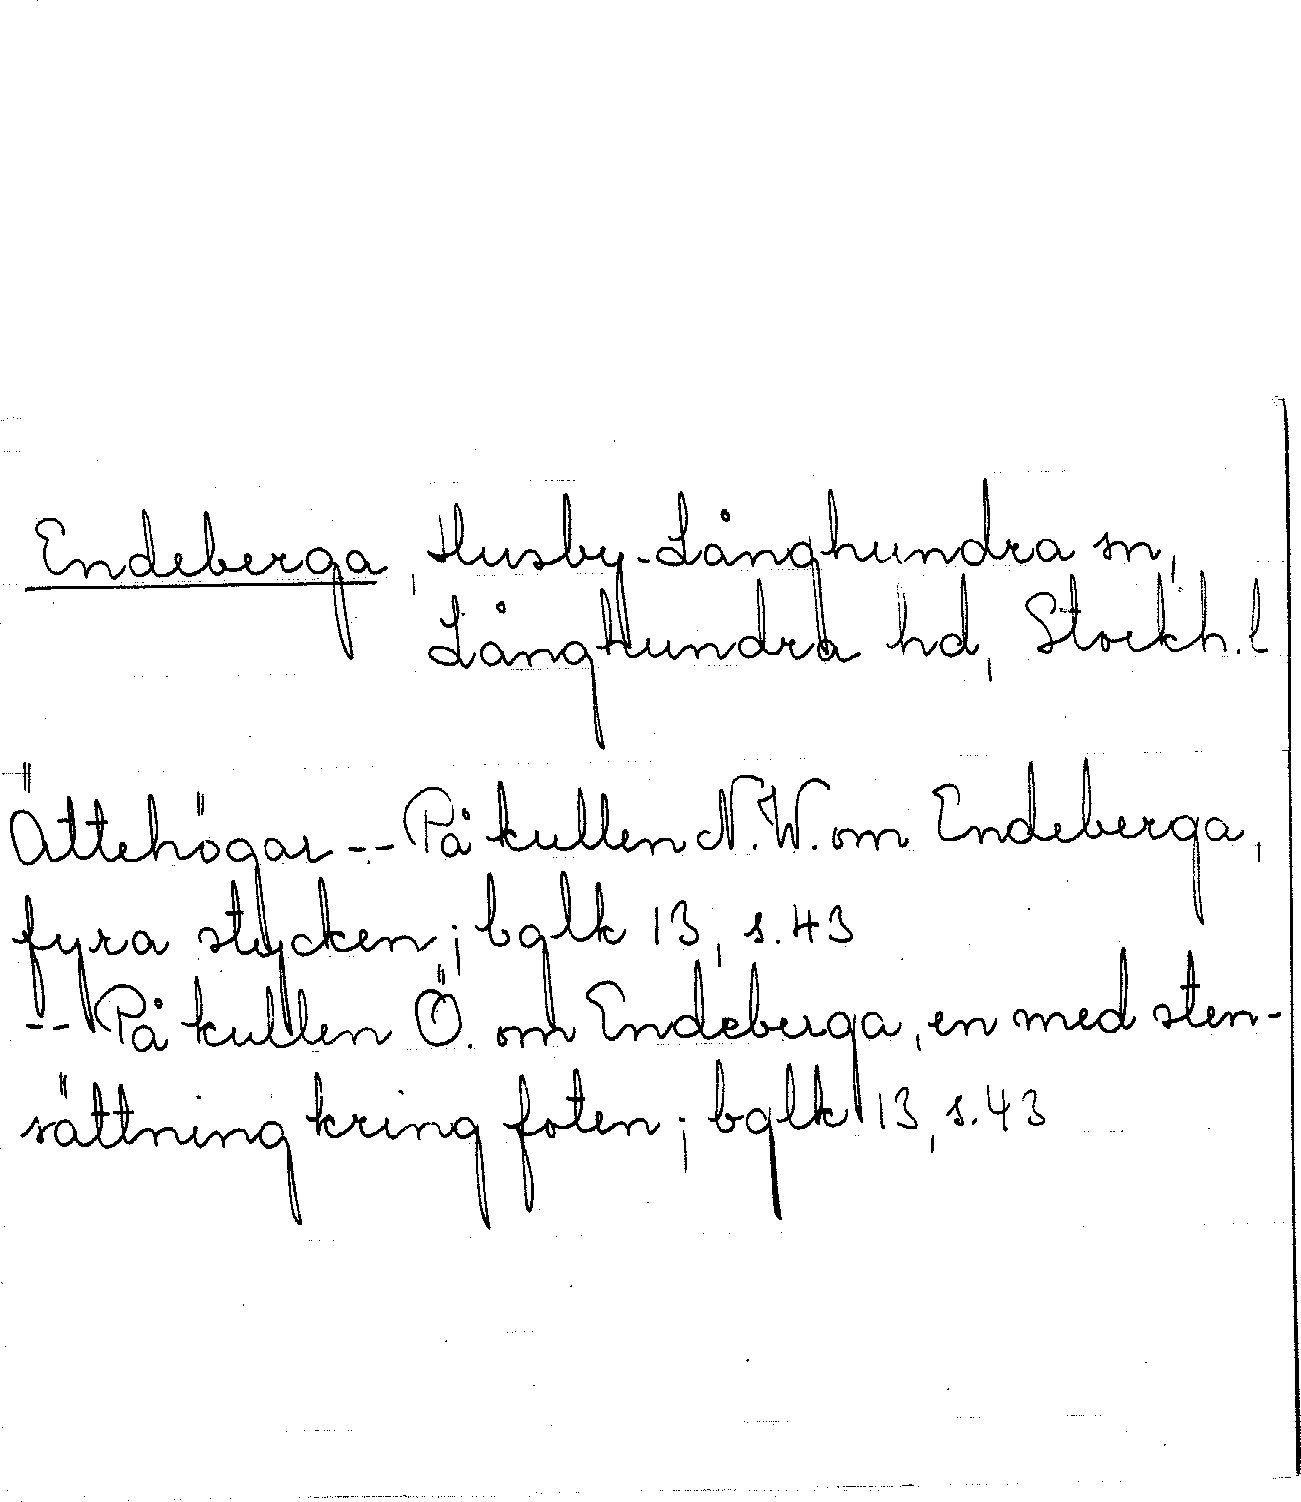 Endeberga, Husby-Långhundra sn,
Långhundra hd, Stockh.l
Ättehögar -- På kullen N.W. om Endeberga,
fyra stycken; bglk 13, s.43
-- På kullen Ö. om Endeberga, en med sten-
sättning kring foten; bglk 13, s.43